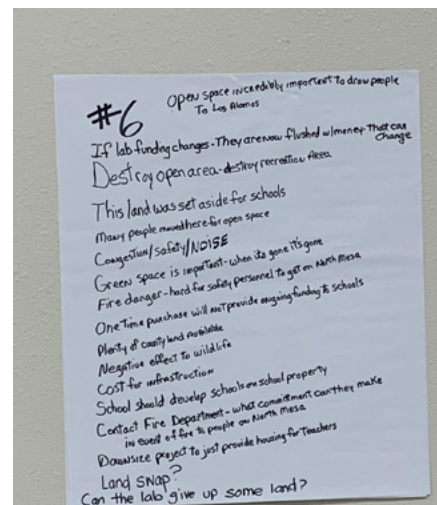 #6
Open space incredibly important to draw people
To Los Alamos
If lab funding changes - They are now flushed w/money - That can
Change
Destroy open area - destroy recreation Area
This land was set aside for schools
Many people moved here for open space
Congestion/Safety/NOISE
Green space is important - when its gone it's gone
Fire danger - hard for safety personnel to get on North Mesa
One Time purchase will not provide ongoing funding to schools
Plenty of county land available
Negative effect to wildlife
Cost for infrastruction
School should develop schools on school property
Contact Fire Department - what commitment can they make
in event of fire to people on North Mesa
Downsize project to just provide housing for Teachers
Land swap?
Can the lab give up some land?